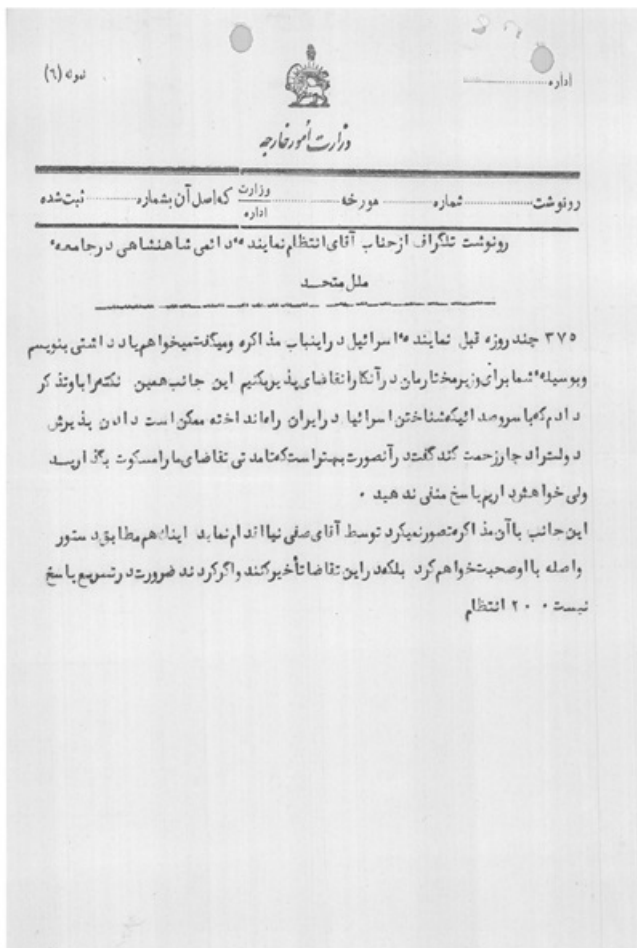 نمونه (٦)
اداره
وزارت امور خارجه
رونوشت شماره مورخه وزارت اداره که اصل آن بشماره ثبت شده
رونوشت تلگراف از جناب آقای انتظام نماینده دائمی شاهنشاهی در جامعه
ملل متحد
۳۷٥ چند روزه قبل نماینده اسرائیل در اینباب مذاکره ومیگفت میخواهم یادداشتی بنویسم
وبوسیله شما برای وزیرمختارمان در آنکارا تقاضای پذیرش بکنیم این جانب همین نکته را باو تذکر
دادم که با سروصدائیکه شناختن اسرائیل در ایران راه انداخته ممکن است دادن پذیرش
دولت را دچار زحمت کند گفت در آنصورت بهتر است که تا مدتی تقاضای ما را مسکوت بگذارید
ولی خواهش داریم پاسخ منفی ندهید ۰
این جانب با آن مذاکره تصور نمیکرد توسط آقای صفی نیا اقدام نماید اینک هم مطابق دستور
واصله با او صحبت خواهم کرد بلکه در این تقاضا تأخیر کنند واگر کردند ضرورت در تسریع پاسخ
نیست ۰ ۲۰ انتظام